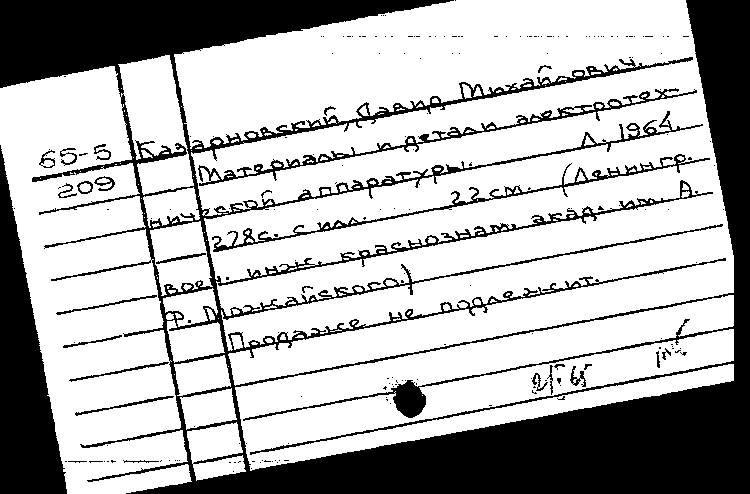 65-5
209
Казарновский, Давид Михайлович.
Материалы и детали электротех-
нической аппаратуры. Л., 1964.
278с. с илл. 22см. (Ленингр.
воен. инж. краснознам. акад. им. А.
Ф. Можайского.)
Продаже не подлежит.
2/I.65